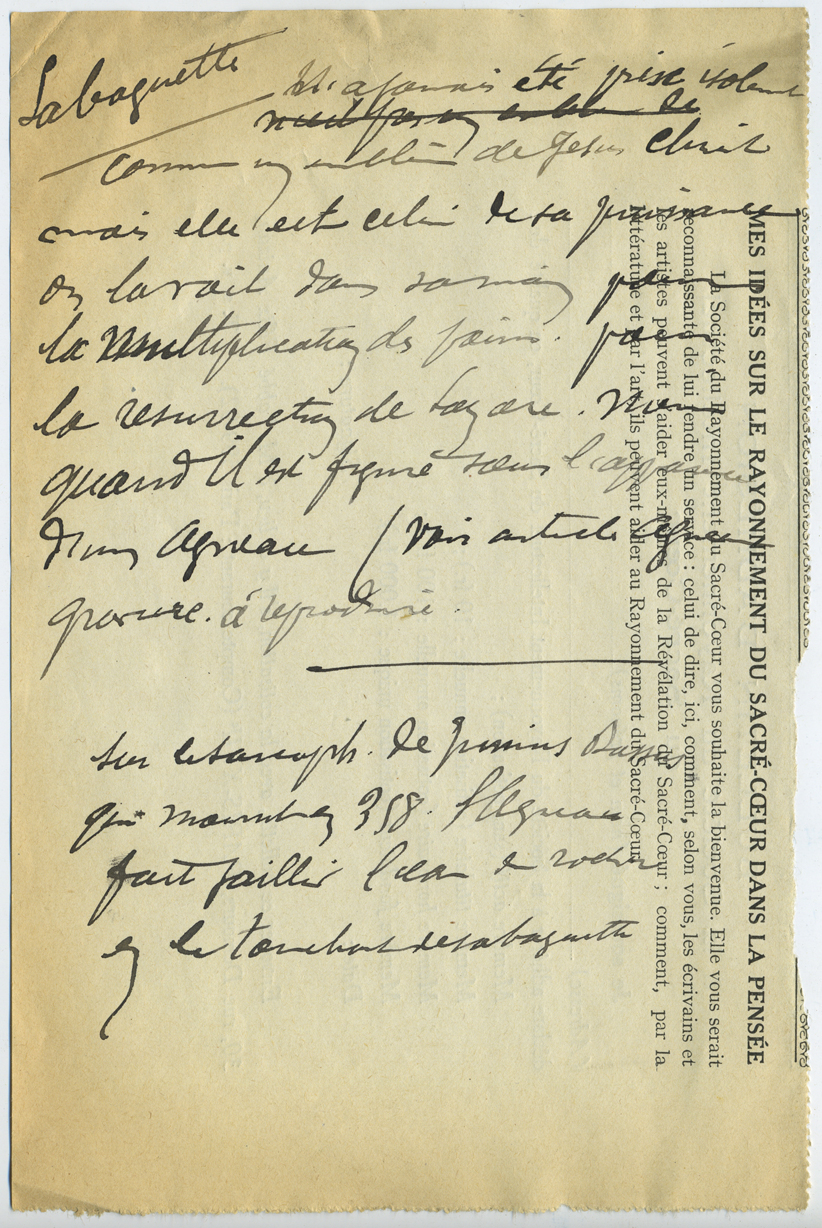 La baguette
n'a jamais été prise isolement
comme un emblème de Jesus Christ
mais elle est celui de sa puissance
on la voit dans sa main pour
la multiplication des pains. pour
la resurrection de Lazare. même
quand Il est figuré sous l'apparence
d'un Agneau (voir article Agneau
gravure. à reproduire.
sur le sarcoph. de Junius Bassus
qui mourut en 358. l'Agneau
fait jaillir l'eau du rocher
en le touchant de sa baguette
MES IDÉES SUR LE RAYONNEMENT DU SACRÉ-CŒUR DANS LA PENSÉE
La Société du Rayonnement du Sacré-Cœur vous souhaite la bienvenue. Elle vous serait
reconnaissante de lui rendre un service : celui de dire, ici, comment, selon vous, les écrivains et
les artistes peuvent s'aider eux-mêmes de la Révélation du Sacré-Cœur ; comment, par la
littérature et par l'art, ils peuvent aider au Rayonnement du Sacré-Cœur.